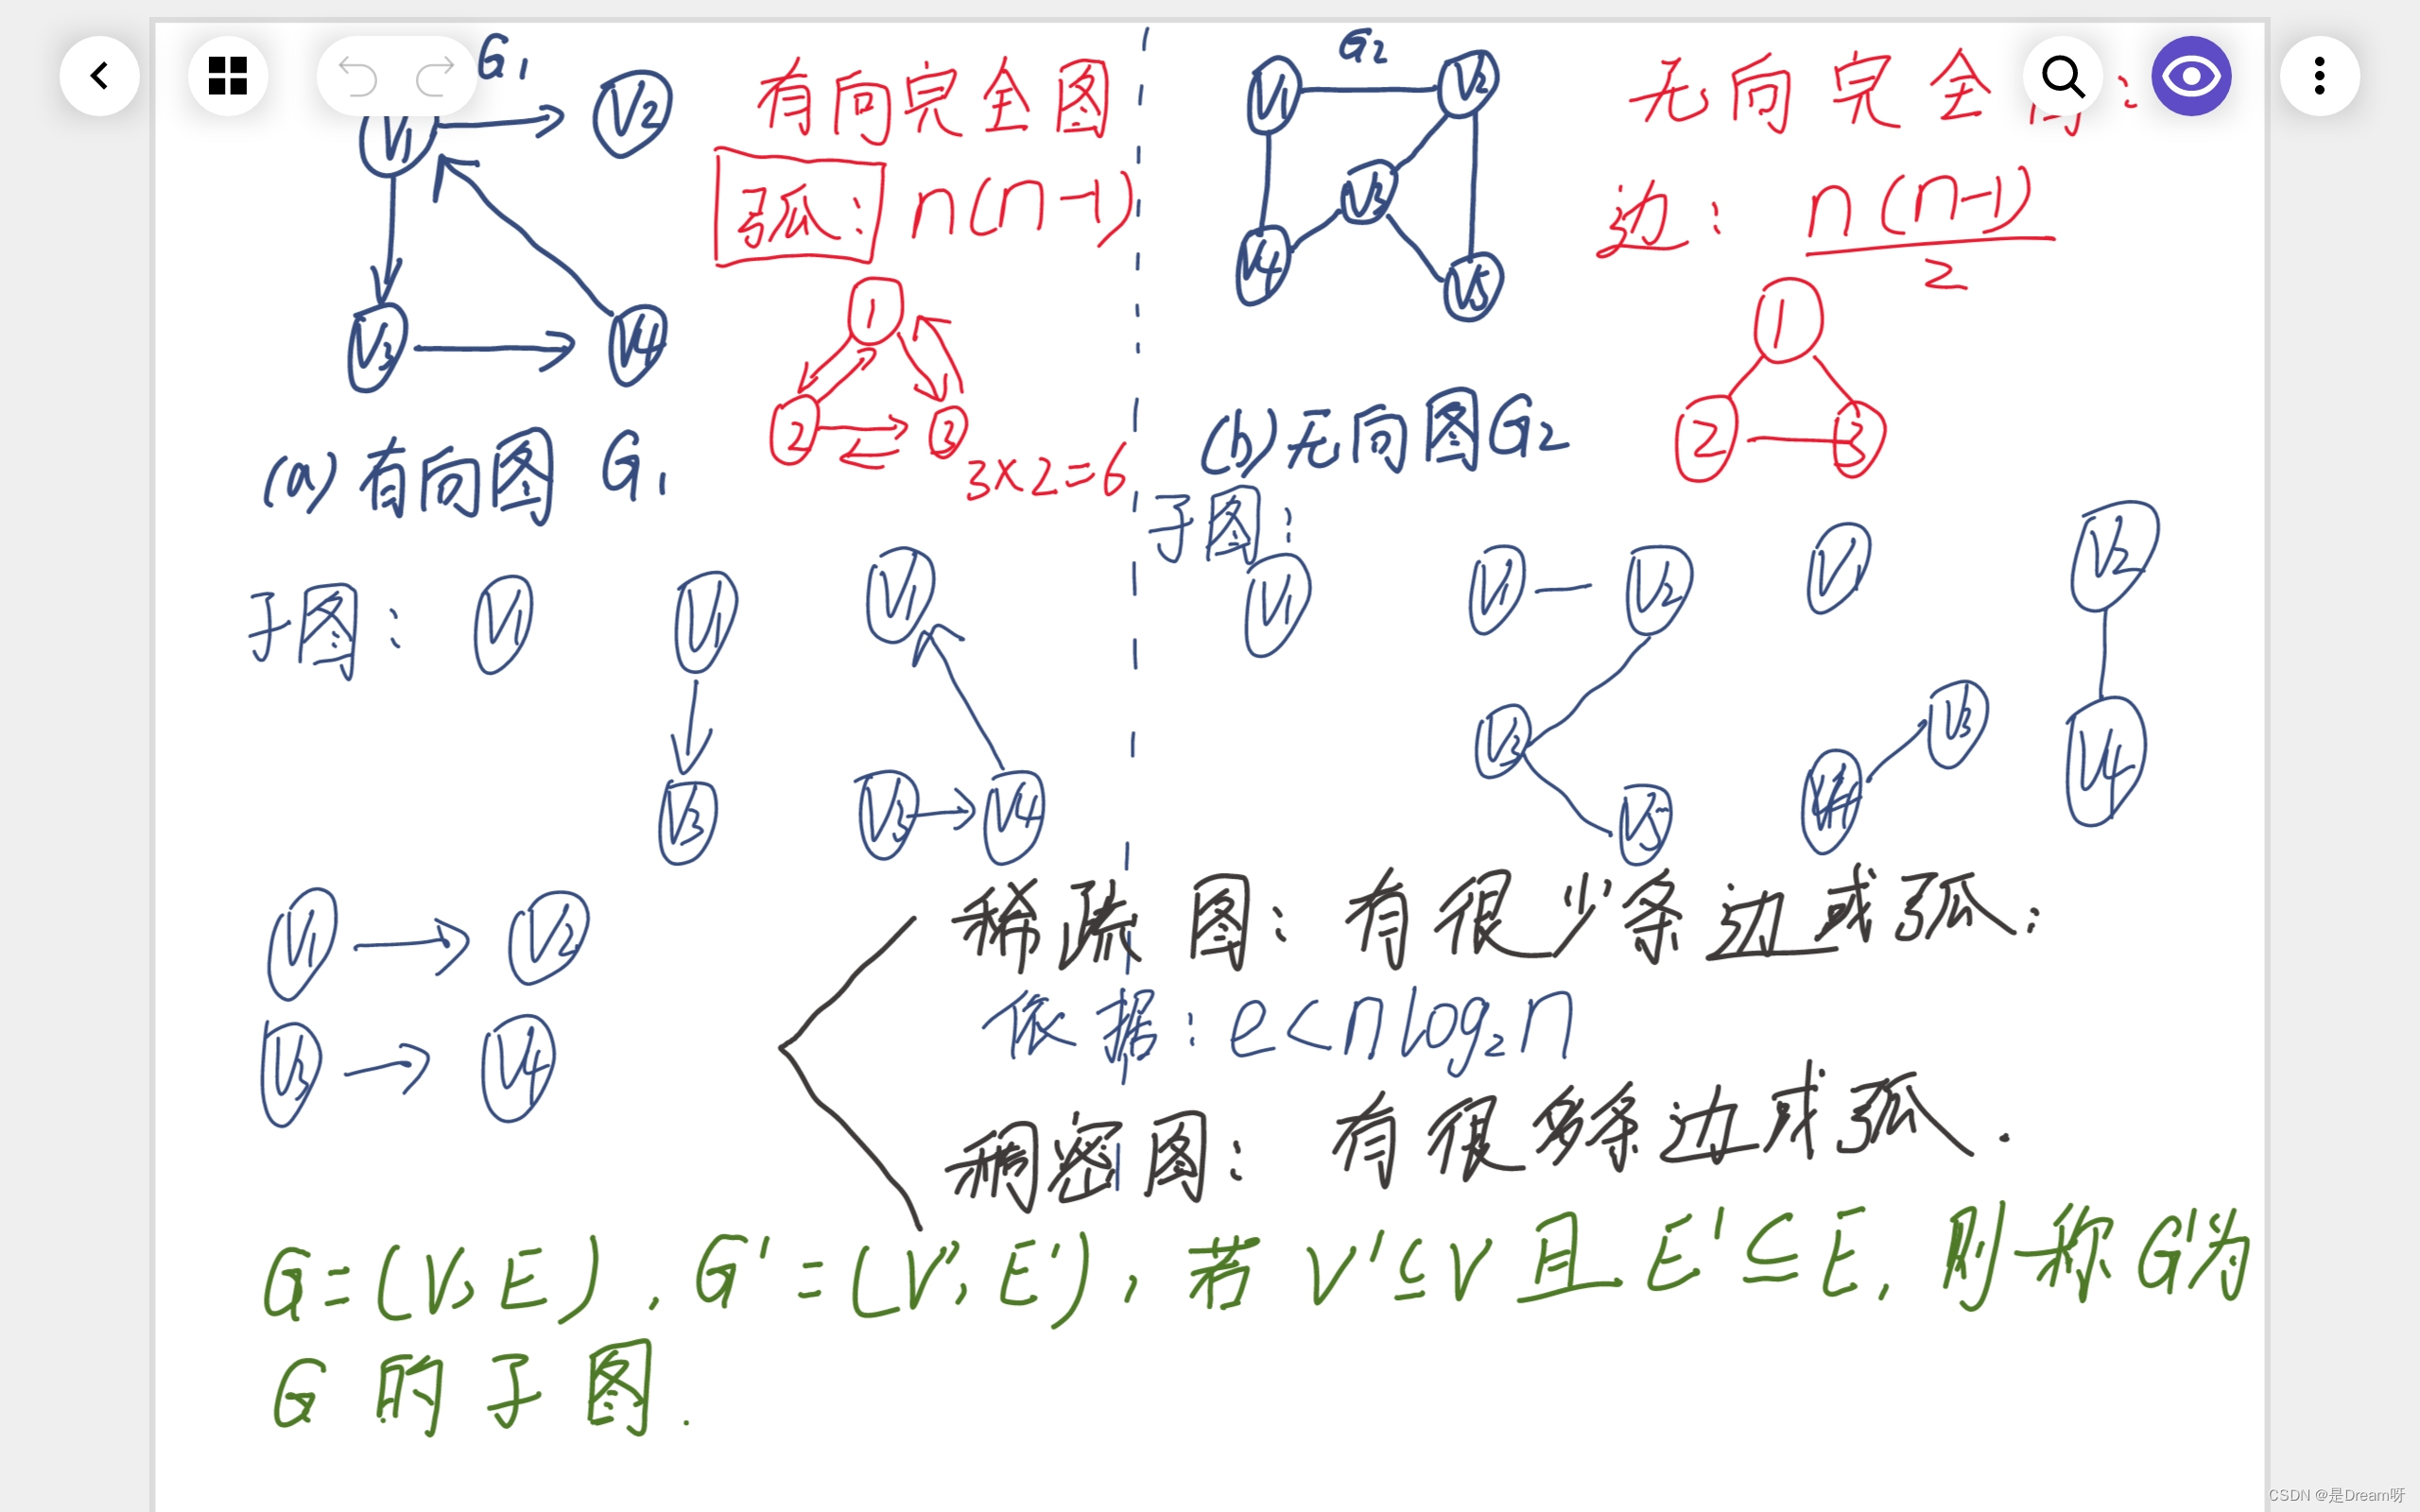 G1
V1 V2
V3 V4
有向完全图
弧: n(n-1)
1
2 3
3×2=6
(a) 有向图 G1
G2
V1 V2
V3
V4 V5
无向完全
边: n(n-1)
2
1
2 3
(b) 无向图G2
子图: V1 V1 V1
V3 V3 V4
V1 V2
V3 V4
子图:
V1 V1 V2 V1 V2
V3 V3
V5 V4 V4
稀疏图: 有很少条边或弧:
依据: e<nlog2n
稠密图: 有很多条边或弧.
G=(V,E), G'=(V',E'), 若 V'⊆V 且 E'⊆E, 则称G'为
G 的子图.
CSDN @是Dream呀